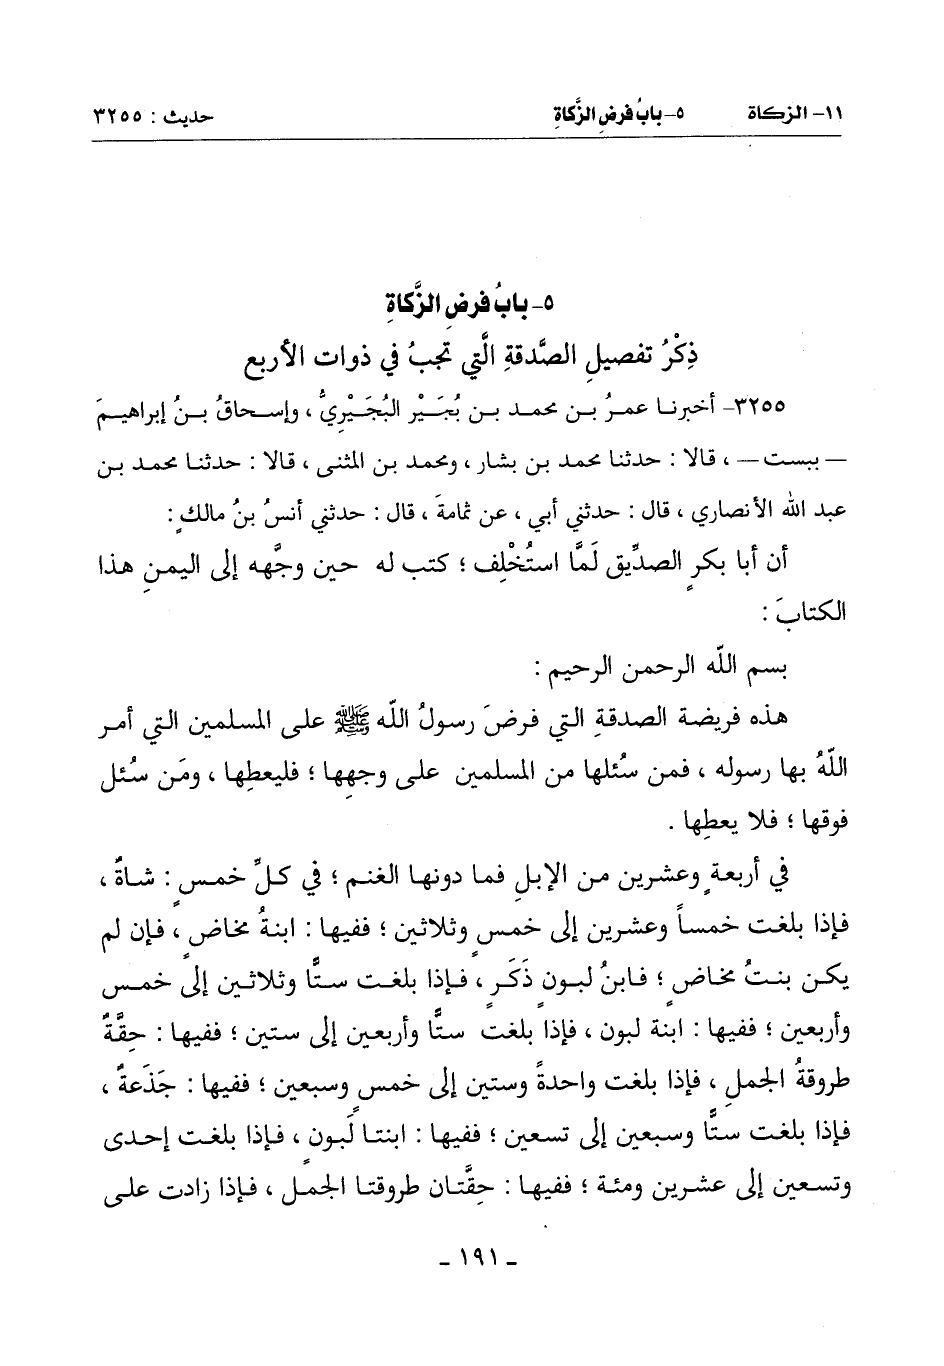 ١١- الزكاة ٥- بابُ فرضِ الزَّكاةِ حديث : ٣٢٥٥
٥- بابُ فرضِ الزَّكاةِ
ذِكْرُ تفصيلِ الصَّدقةِ الَّتي تجبُ في ذوات الأربع
٣٢٥٥- أخبرنا عمرُ بن محمد بن بُجَيْر البُجَيْرِيُّ ، وإسحاقُ بنُ إبراهيمَ
– ببست – ، قالا : حدثنا محمد بن بشار ، ومحمد بن المثنى ، قالا : حدثنا محمد بن
عبد الله الأنصاري ، قال : حدثني أبي ، عن ثمامةَ ، قال : حدثني أنسُ بنُ مالكٍ :
أن أبا بكرٍ الصدِّيق لَمَّا استُخْلِف ؛ كتب له حين وجَّهه إلى اليمنِ هذا
الكتابَ :
بسم اللَّه الرحمن الرحيم :
هذه فريضة الصدقةِ التي فرضَ رسولُ اللَّه ﷺ على المسلمين التي أمر
اللَّهُ بها رسوله ، فمن سُئلها من المسلمين على وجهِها ؛ فليعطِها ، ومَن سُئل
فوقها ؛ فلا يعطِها .
في أربعةٍ وعشرين من الإبلِ فما دونها الغنم ؛ في كلِّ خمسٍ : شاةٌ ،
فإذا بلغت خمساً وعشرين إلى خمسٍ وثلاثين ؛ ففيها : ابنةُ مخاضٍ ، فإن لم
يكن بنتُ مخاضٍ ؛ فابنُ لبونٍ ذَكَرٍ ، فإذا بلغت ستًّا وثلاثين إلى خمس
وأربعين ؛ ففيها : ابنة لبون ، فإذا بلغت ستًّا وأربعين إلى ستين ؛ ففيها : حِقَّةٌ
طروقةُ الجملِ ، فإذا بلغت واحدةً وستين إلى خمسٍ وسبعين ؛ ففيها : جَذَعةٌ ،
فإذا بلغت ستًّا وسبعين إلى تسعين ؛ ففيها : ابنتا لَبونٍ ، فإذا بلغت إحدى
وتسعين إلى عشرين ومئة ؛ ففيها : حِقَّتان طروقتا الجمل ، فإذا زادت على
- ١٩١ -